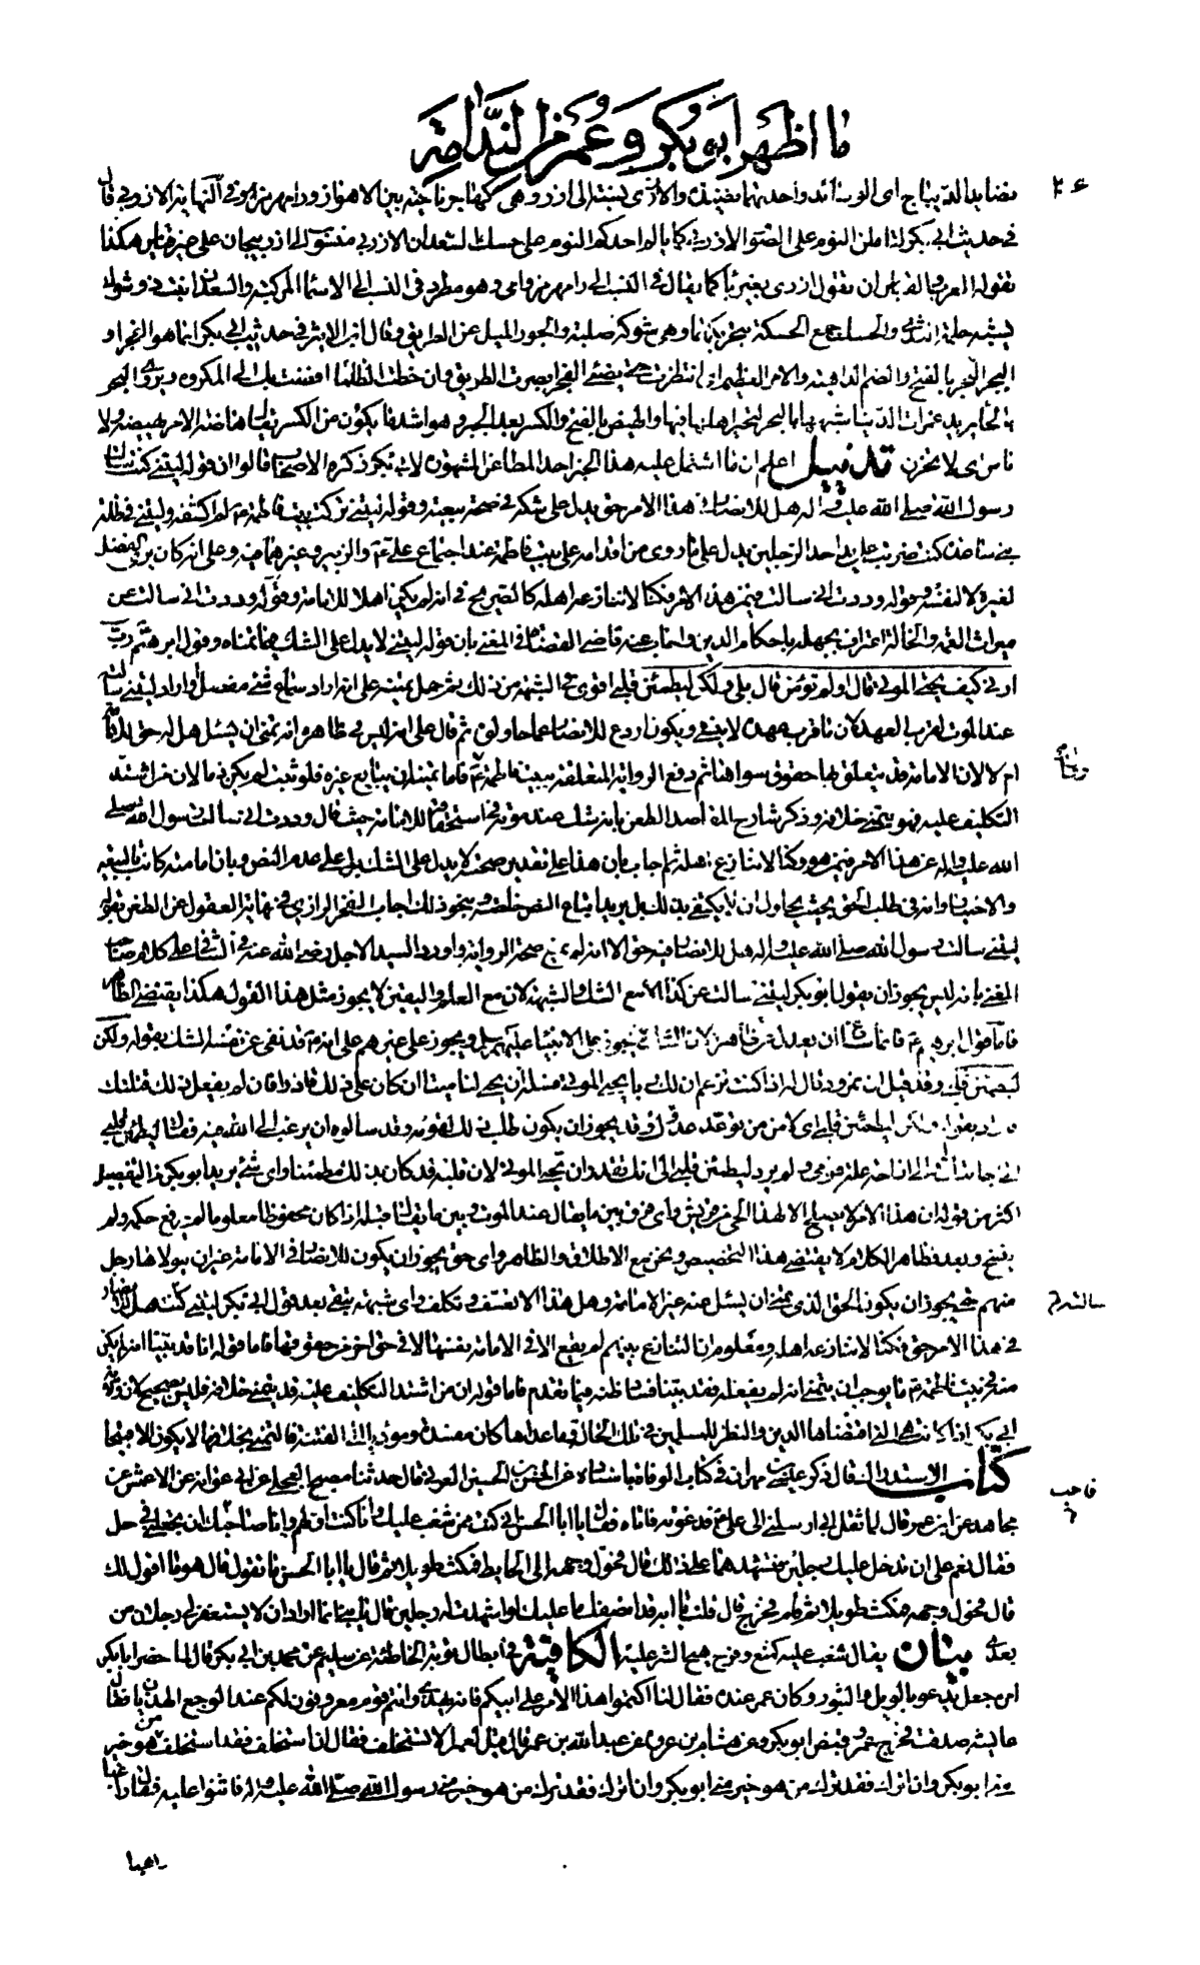 ما اظهر ابو بكر و عمر من الندامة
٢٤
نضايد الديباج اى الوسائد واحدتها نضيدة والاذرى نسبة الى اذر وهى كهاجر ناحية بين الاهواز ورامهرمز وفى النهاية الاذربى قال
فى حديث ابى بكر لتالمن النوم على الصوف الاذربى كما يالم احدكم النوم على حسك السعدان الاذربى منسوب الى اذربيجان على غير قياس هكذا
تقوله العرب والقياس ان تقول اذرى بغير باء كما يقال فى النسب الى رامهرمز رامى وهو مطرد فى النسب الى الاسماء المركبة والسعدان نبت ذو شوك
يشبه حلمة الثدى والحسك جمع الحسكة بتحريكهما وهى شوكة صلبة والجور الميل عن الطريق وقال ابن الاثير فى حديث ابى بكر انما هو الفجر او
البجر البجر بالفتح والضم الداهية والامر العظيم اى ان انتظرت حتى يضىء الفجر ابصرت الطريق وان خبطت الظلماء افضت بك الى المكروه ويروى البحر
بالحاء يريد غمرات الدنيا شبهها بالبحر لتحير اهلها فيها والهيض بالفتح والكسر بعد الجبر وهو اشد ما يكون من الكسر يقال هاضه الامر يهيضه ولا
تاس اى لا تحزن تذييل اعلم ان ما اشتمل عليه هذا الخبر احد المطاعن المشهورة لابى بكر ذكره الاصحاب قالوا ان قوله ليتنى كنت سالت
رسول الله صلى الله عليه واله هل للانصار فى هذا الامر حق يدل على شكه فى صحة بيعته وقوله ليتنى تركت بيت فاطمة ع لم اكشفه وليتنى فى ظلة
بنى ساعدة كنت ضربت على يد احد الرجلين يدل على ما روى من اقدامه على بيت فاطمة عند اجتماع على ع والزبير وغيرهما فيه وعلى انه كان يرى الفضل
لغيره لا لنفسه وقوله وددت انى سالت فيمن هذا الامر فكنا لا ننازعه اهله كالصريح فى انه لم يكن اهلا للامامة وقوله وددت انى سالت عن
ميراث العمة والخالة اعتراف بجهله باحكام الدين واجاب عنه قاضى القضاة فى المغنى بان قوله ليتنى لا يدل على الشك فيما تمناه وقول ابرهيم رب
ارنى كيف تحيى الموتى قال اولم تؤمن قال بلى ولكن ليطمئن قلبى اقوى فى الشبهة من ذلك ثم حمل تمنيه على انه اراد سماع شىء مفصل او اراد ليتنى سالته
عند الموت لقرب العهد لان ما قرب عهده لا ينسى ويكون اردع للانصار عما حاولوه ثم قال على انه ليس فى ظاهره انه تمنى ان يسئل هل له حق فى الامامة
ام لا لان الامامة قد يتعلق بها حقوق سواها ثم دفع الرواية المتعلقة ببيت فاطمة ع فاما تمنيه ان يبايع غيره فلو ثبت لم يكن ذما لان من اشتد
التكليف عليه فهو يتمنى خلافه وذكر شارح المقاصد الطعن بانه شك عند موته فى استحقاقه للامامة حيث قال وددت انى سالت رسول الله صلى
الله عليه واله عن هذا الامر فيمن هو وكنا لا ننازع اهله ثم اجاب بان هذا على تقدير صحته لا يدل على الشك بل على عدم النص وبان امامته كانت بالبيعة
والاختيار وانه فى طلب الحق بحيث يحاول ان لا يكتفى بذلك بل يريد اتباع النص خاصة وبنحو ذلك اجاب الفخر الرازى فى نهاية العقول عن الطعن بقوله
ليتنى سالت رسول الله صلى الله عليه واله هل للانصار فيه حق الا انه لم يمنع صحة الرواية واورد السيد الاجل رضى الله عنه فى الشافى على كلام صاحب
المغنى بانه ليس يجوز ان يقول ابو بكر ليتنى سالت عن كذا الا مع الشك والشبهة لان مع العلم واليقين لا يجوز مثل هذا القول هكذا يقتضى الظاهر
فاما قول ابرهيم ع فانما ساغ ان يعدل عن ظاهره لان الشك لا يجوز على الانبياء عليهم السلم ويجوز على غيرهم على انه ع قد نفى عن نفسه الشك بقوله بلى ولكن
ليطمئن قلبى وقد قيل ان نمرود قال له اذا كنت تزعم ان لك ربا يحيى الموتى فسله ان يحيى لنا ميتا ان كان على ذلك قادرا فان لم يفعل ذلك قتلتك
فاراد بقوله ولكن ليطمئن قلبى اى لامن من توعد عدوك وقد يجوز ان يكون طلب ذلك لقومه وقد سالوه ان يرغب الى الله فيه فقال ليطمئن قلبى
الى اجابتك لى والى ازاحة علة قومى ولم يرد ليطمئن قلبى الى انك تقدر ان تحيى الموتى لان قلبه قد كان بذلك مطمئنا واى شىء يريد ابو بكر من التفصيل
اكثر من قوله ان هذا الامر لا يصلح الا لهذا الحى من قريش واى فرق بين ما يقال عند الموت وبين ما يقال قبله اذا كان محفوظا معلوما لم يرفع حكمه ولم
ينسخ وبعد فظاهر الكلام لا يقتضى هذا التخصيص ونحن مع الاطلاق والظاهر واى حق يجوز ان يكون للانصار فى الامامة غير ان يتولاها رجل
منهم حتى يجوز ان يكون الحق الذى تمنى ان يسئل عنه غير الامامة وهل هذا الا تعسف وتكلف واى شبهة يبقى بعد قول ابى بكر ليتنى كنت سالته هل للانصار
فى هذا الامر حق فكنا لا ننازعه اهله ومعلوم ان التنازع بينهم لم يقع الا فى الامامة نفسها لا فى حق اخر من حقوقها فاما قوله انا قد بينا انه لم يكن
منه فى بيت فاطمة ع ما يوجب ان يتمنى انه لم يفعله فقد بينا فساد ظنه فيما تقدم فاما قوله ان من اشتد التكليف عليه قد يتمنى خلافه فليس بصحيح لان ولاية
ابى بكر اذا كانت هى التى اقتضاها الدين والنظر للمسلمين فى تلك الحال وما عداها كان مفسدة ومؤديا الى الفتنة فالتمنى بخلافها لا يكون الا قبيحا
كتاب الاستدراك قال ذكر عيسى بن مهران فى كتاب الوفاة باسناده عن الحسن بن الحسين العرنى قال حدثنا مصبح العجلى عن ابى عوانة عن الاعمش عن
مجاهد عن ابن عمر قال لما ثقل ابى ارسلنى الى على ع فدعوته فاتاه فقال يا ابا الحسن انى كنت ممن شغب عليك وانا كنت اولهم وانا صاحبك فاحب ان تجعلنى فى حل
فقال نعم على ان تدخل عليك رجلين فتشهدهما على ذلك قال فحول وجهه الى الحايط فمكث طويلا ثم قال يا ابا الحسن ما تقول قال هو ما اقول لك
قال فحول وجهه فمكث طويلا ثم قام فخرج قال قلت يا ابه قد انصفك ما عليك لو اشهدت له رجلين قال يا بنى انما اراد ان لا يستغفر لى رجلان من
بعدى بيان يقال شغب عليه كمنع وفرح هيج الشر عليه الكافية فى ابطال توبة الخاطئة عن سليم عن محمد بن ابى بكر قال لما حضر ابا بكر
امره جعل يدعو بالويل والثبور وكان عمر عنده فقال لنا اكتموا هذا الامر على ابيكم فانه يهذى وانتم قوم معروفون لكم عند الوجع الهذيان فقالت
عايشه صدقت فخرج عمر وقبض ابو بكر وعن هشام بن عروة عن عبدالله بن عمر قال قيل لعمر الا تستخلف فقال ان استخلف فقد استخلف من هو خير
منى ابو بكر وان اترك فقد ترك من هو خير منى رسول الله صلى الله عليه واله فاثنوا عليه فقال راغبا
وقائم
سالته
فاحب
راهبا